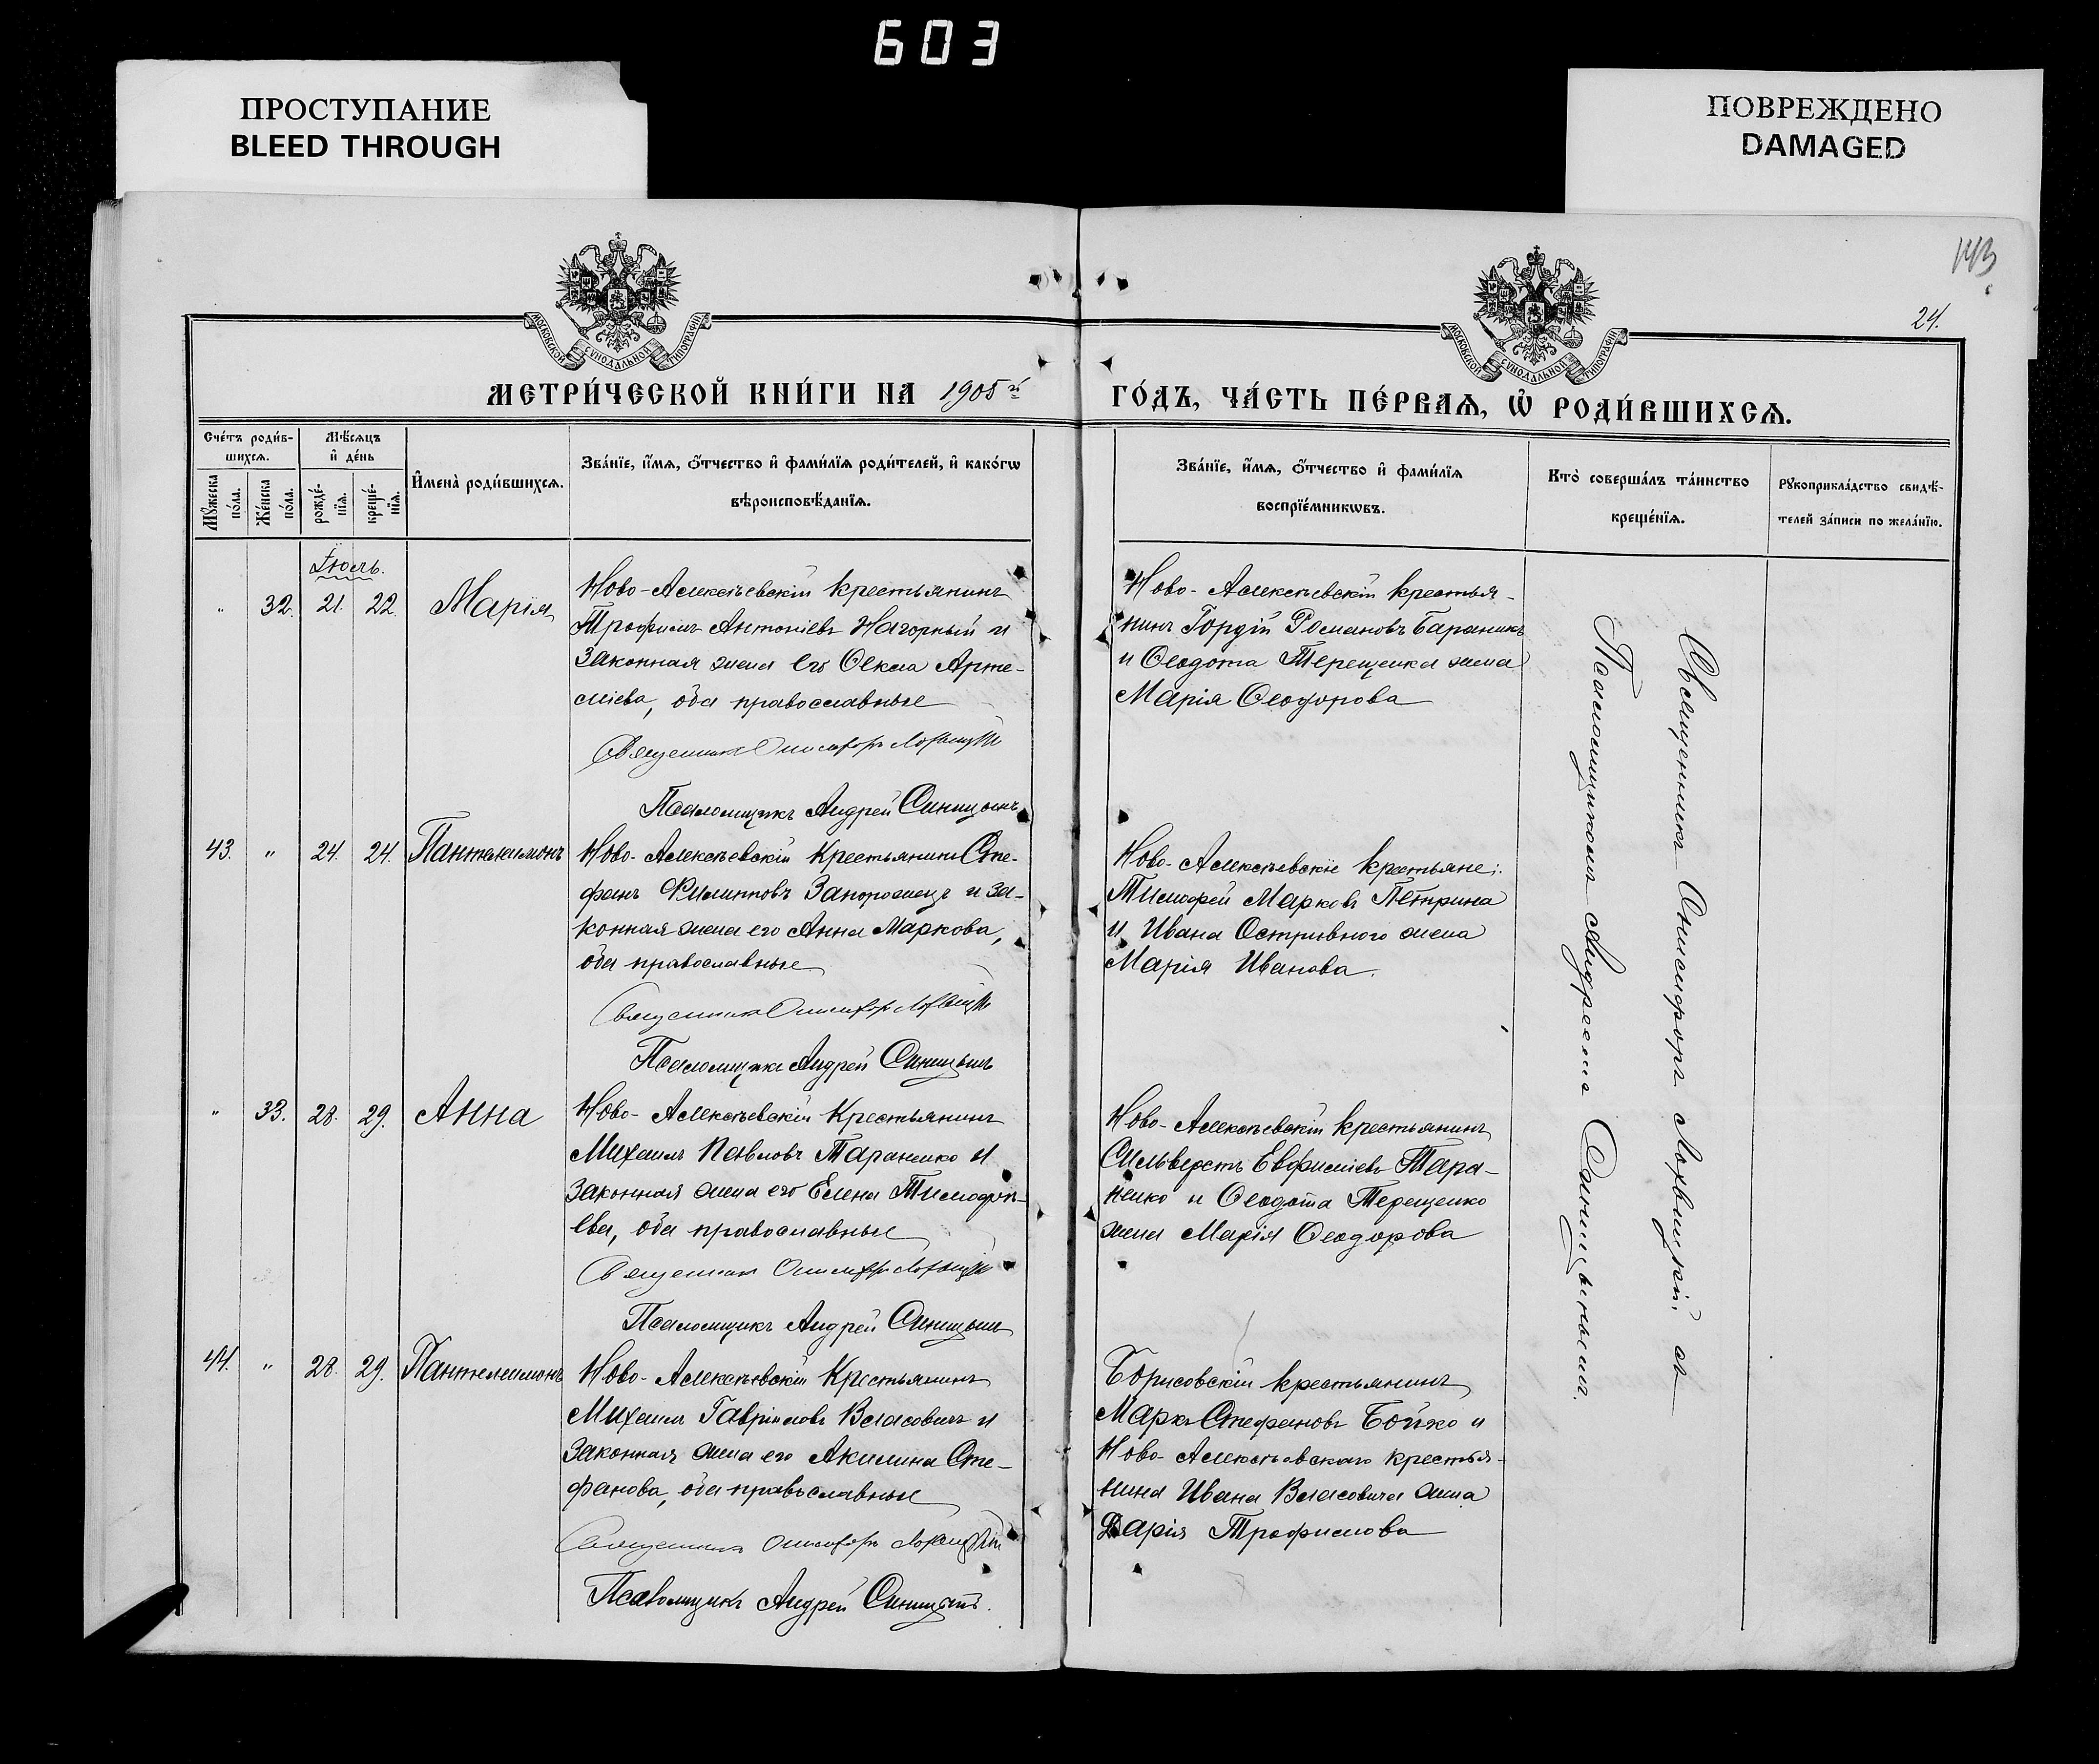 603
ПРОСТУПАНИЕ
BLEED THROUGH
ПОВРЕЖДЕНО
DAMAGED
143
24.
МОСКОВСКОЙ СѴНОДАЛЬНОЙ ТИПОГРАФІИ
МОСКОВСКОЙ СѴНОДАЛЬНОЙ ТИПОГРАФІИ
МЕТРИ́ЧЕСКОЙ КНИ́ГИ НА 1905й
ГО́ДЪ, ЧА́СТЬ ПЕ́РВАѦ, Ѽ РОДИ́ВШИХСѦ.
Сче́тъ роди́в-
шихсѧ.
Мꙋжеска по́ла.
Же́нска по́ла.
Мѣ́сѧцъ
и҆ де́нь
рожде́-
нїѧ.
креще́-
нїѧ.
И҆мена̀ роди́вшихсѧ.
Зва́нїе, и҆́мѧ, ѻ҆́тчество и҆ фами́лїѧ роди́телей, и҆ како́гѡ
вѣроисповѣ́данїѧ.
Зва́нїе, и҆́мѧ, ѻ҆́тчество и҆ фами́лїѧ
воспрїе́мникѡвъ.
Кто̀ соверша́лъ та́инство
креще́нїѧ.
Рꙋкоприкла́дство свидѣ́-
телей за́писи по жела́нїю.
Іюль.
" 32. 21. 22. Марія
Ново-Алексѣевскій крестьянинъ
Трофимъ Антоніевъ Нагорный и
законная жена его Ѳекла Арте-
міева, оба православные
Священникъ Онисифоръ Лохвицкій
Псаломщикъ Андрей Синицынъ
Ново-Алексѣевскій крестья-
нинъ Гордій Романовъ Бараникъ
и Ѳеодота Терещенка жена
Марія Ѳеодорова
43. " 24. 24. Пантелеимонъ
Ново-Алексѣевскій крестьянинъ Сте-
фанъ Филипповъ Запорожецъ и за-
конная жена его Анна Маркова,
оба православные
Священникъ Онисифоръ Лохвицкій
Псаломщикъ Андрей Синицынъ
Ново-Алексѣевскіе крестьяне:
Тимофей Марковъ Петрина
и Ивана Остривного жена
Марія Иванова.
" 33. 28. 29. Анна
Ново-Алексѣевскій Крестьянинъ
Михаилъ Павловъ Тараненко и
законная жена его Елена Тимофѣ-
ева, оба православные
Священникъ Онисифоръ Лохвицкій
Псаломщикъ Андрей Синицынъ
Ново-Алексѣевскій крестьянинъ
Сильверстъ Евфиміевъ Тара-
ненко и Ѳеодота Терещенко
жена Марія Ѳеодорова
44. " 28. 29. Пантелеимонъ
Ново-Алексѣевскій Крестьянинъ
Михаилъ Гавріиловъ Власовичъ и
законная жена его Акилина Сте-
фанова, оба православные
Священникъ Онисифоръ Лохвицкій
Псаломщикъ Андрей Синицынъ.
Борисовскій крестьянинъ
Маркъ Стефановъ Бойко и
Ново-Алексѣевскаго крестья-
нина Ивана Власовича жена
Дарія Трофимова
Священникъ Онисифоръ Лохвицкій съ
Псаломщикомъ Андреемъ Синицынымъ.